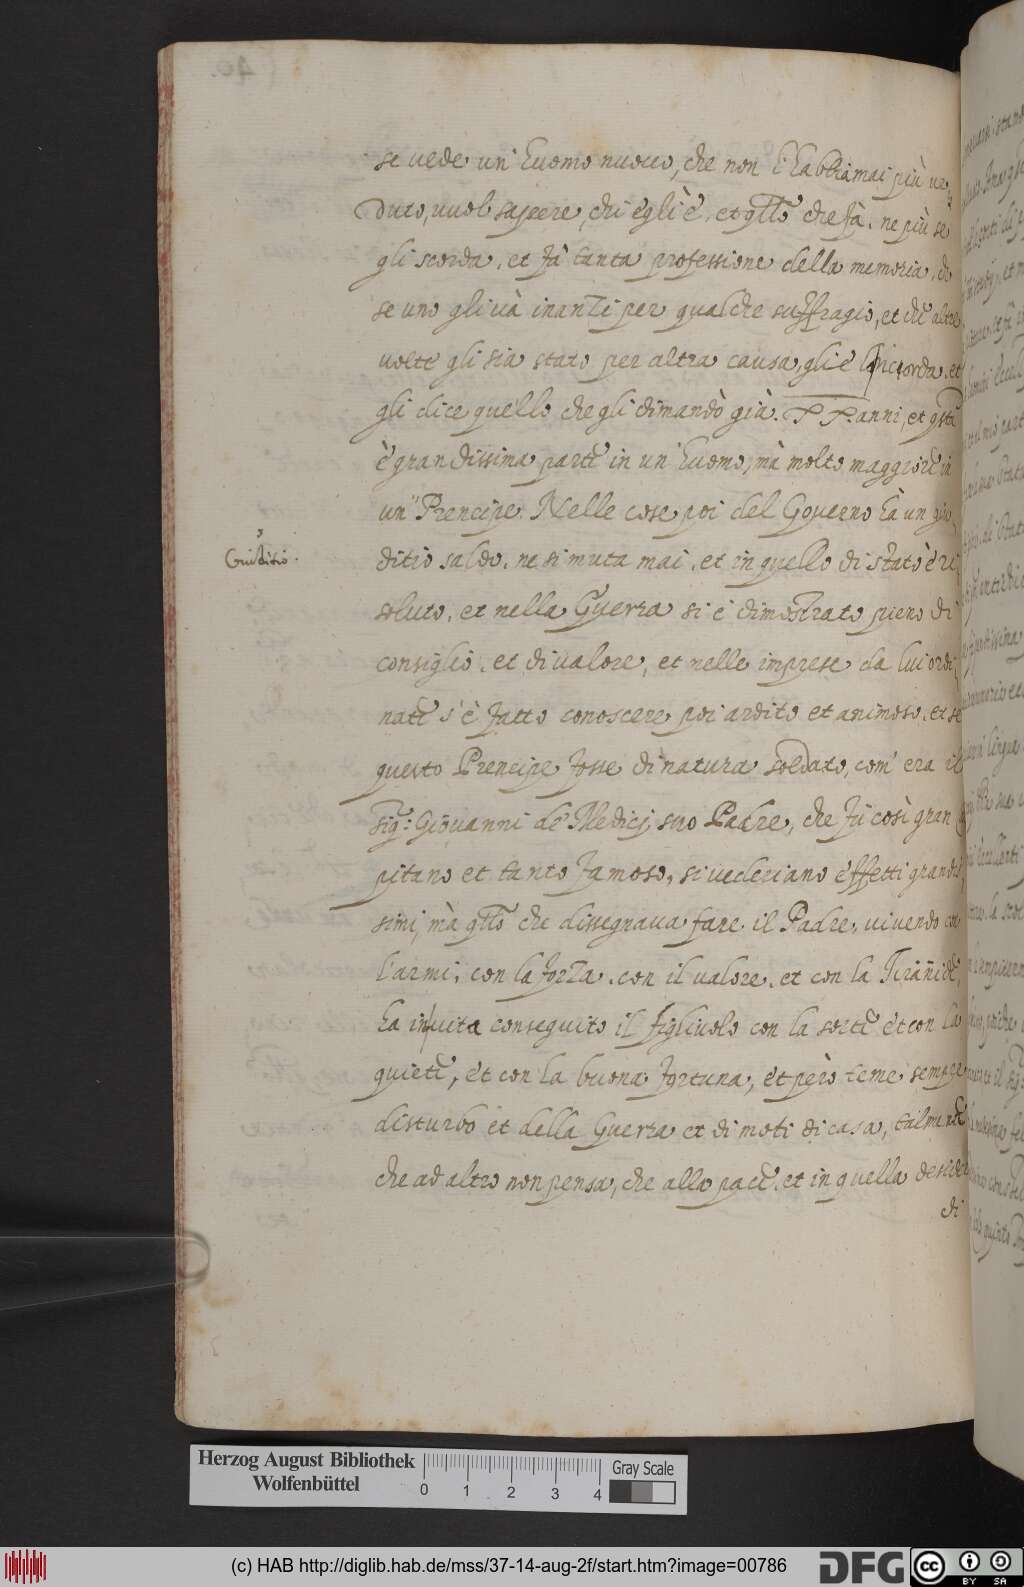 se vede un' huomo nuovo, che non l'habbia mai più ve
duto, vuol sapere, chi egli è, et qllo che fà. ne più se
gli scorda, et fà tanta professione della memoria, che
se uno gli và inanzi per qualche suffragio, et che altre
volte gli sia stato per altra causa, gli è lo ricorda, et
gli dice quello che gli dimandò già. P P. anni, et qsta
è grandissima parte in un' huomo, mà molto maggiore in
un' Prencipe. Nelle cose poi del Governo hà un giu
Giuditio.
ditio saldo, ne si muta mai, et in quello di stato è ri
soluto, et nella Guerra si è dimostrato pieno di
consiglio, et di valore, et nelle imprese da lui ordi
nate s'è fatto conoscere poi ardito et animoso, et se
questo Prencipe fosse di natura soldato, com' era il
Sigr: Giovanni de' Medici suo Padre, che fù così gran
pitano et tanto famoso, si vederiano effetti grandis
simi, mà qllo che dissegnava fare il Padre, vivendo con
l'armi, con la forza, con il valore, et con la Tirannide,
ha in vita conseguito il figliuolo con la sorte et con la
quiete, et con la buona fortuna, et però teme sempre
disturbo et della Guerra et di moti di casa, talmente
che ad altro non pensa, che alla pace, et in quella desidera
di
Herzog August Bibliothek
Wolfenbüttel
0 1 2 3 4
Gray Scale
(c) HAB http://diglib.hab.de/mss/37-14-aug-2f/start.htm?image=00786
DFG
cc BY SA